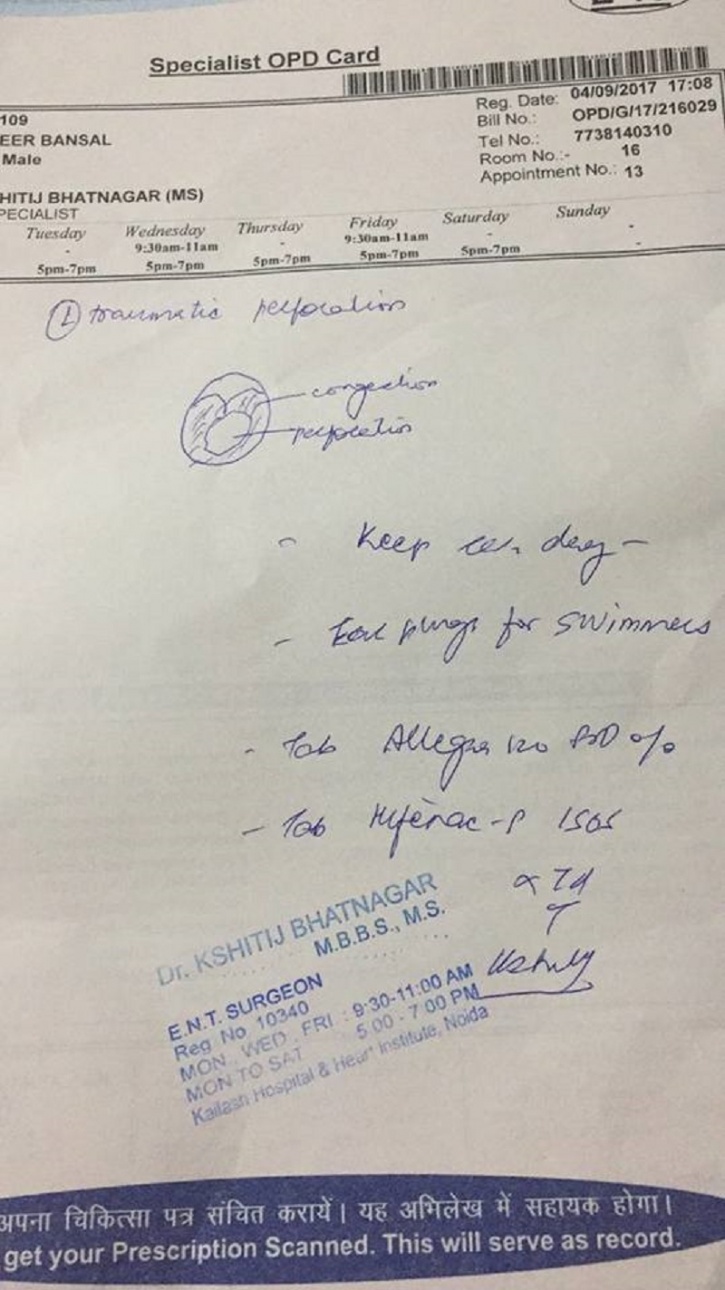 Specialist OPD Card
109
EER BANSAL
Male
Reg. Date: 04/09/2017 17:08
Bill No.: OPD/G/17/216029
Tel No.: 7738140310
Room No.:- 16
Appointment No.: 13
HITIJ BHATNAGAR (MS)
PECIALIST
Tuesday Wednesday Thursday Friday Saturday Sunday
- 9:30am-11am - 9:30am-11am - -
5pm-7pm 5pm-7pm 5pm-7pm 5pm-7pm 5pm-7pm -
(L) traumatic perforation
congestion
perforation
- Keep ear dry -
- Ear plugs for swimmers
- Tab Allegra 120
- Tab Hifenac-P
x 7d
Dr. KSHITIJ BHATNAGAR
M.B.B.S., M.S.
E.N.T. SURGEON
Reg No 10340
MON, WED, FRI : 9:30-11:00 AM
MON TO SAT 5.00 - 7 00 PM
Kailash Hospital & Heart Institute, Noida
अपना चिकित्सा पत्र संचित करायें। यह अभिलेख में सहायक होगा।
get your Prescription Scanned. This will serve as record.